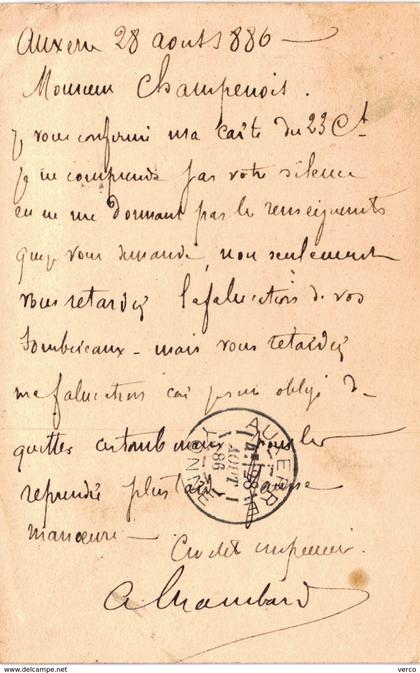 Auxerre 28 aout 1886
Monsieur Champenois.
Je vous confirme ma carte du 23 Ct
je ne comprends pas votre silence
en ne me donnant pas les renseignements
que je vous demande, non seulement
vous retardez la fabrication de vos
Tombereaux - mais vous retardez
ma fabrication car je suis obligé de
quitter
reprendre plus tard
manoeuvre
AUXERRE
AOUT
86
YONNE
www.delcampe.net
verco